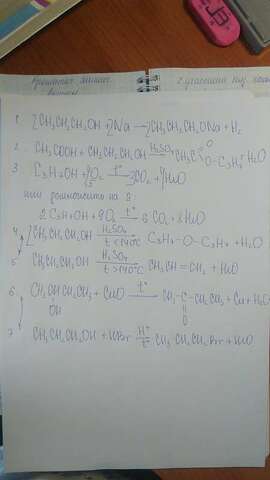 1. 2CH₃CH₂CH₂OH + 2Na → 2CH₃CH₂CH₂ONa + H₂
2. CH₃COOH + CH₃CH₂CH₂OH H₂SO₄ → CH₃C O O-C₃H₇ + H₂O
3. C₃H₇OH + O₂ t° → 3CO₂ + 4H₂O
или домножить на 2
2C₃H₇OH + 9O₂ t° → 6CO₂ + 8H₂O
4. 2CH₃CH₂CH₂OH H₂SO₄ t<140°C → C₃H₇-O-C₃H₇ + H₂O
5. CH₃CH₂CH₂OH H₂SO₄ → CH₃CH=CH₂ + H₂O
6. CH₃CHCH₂CH₃ + CuO t° → CH₃-C-CH₂CH₃ + Cu + H₂O
OH O
7. CH₃CH₂CH₂OH + HBr H⁺ t° → CH₃CH₂CH₂Br + H₂O